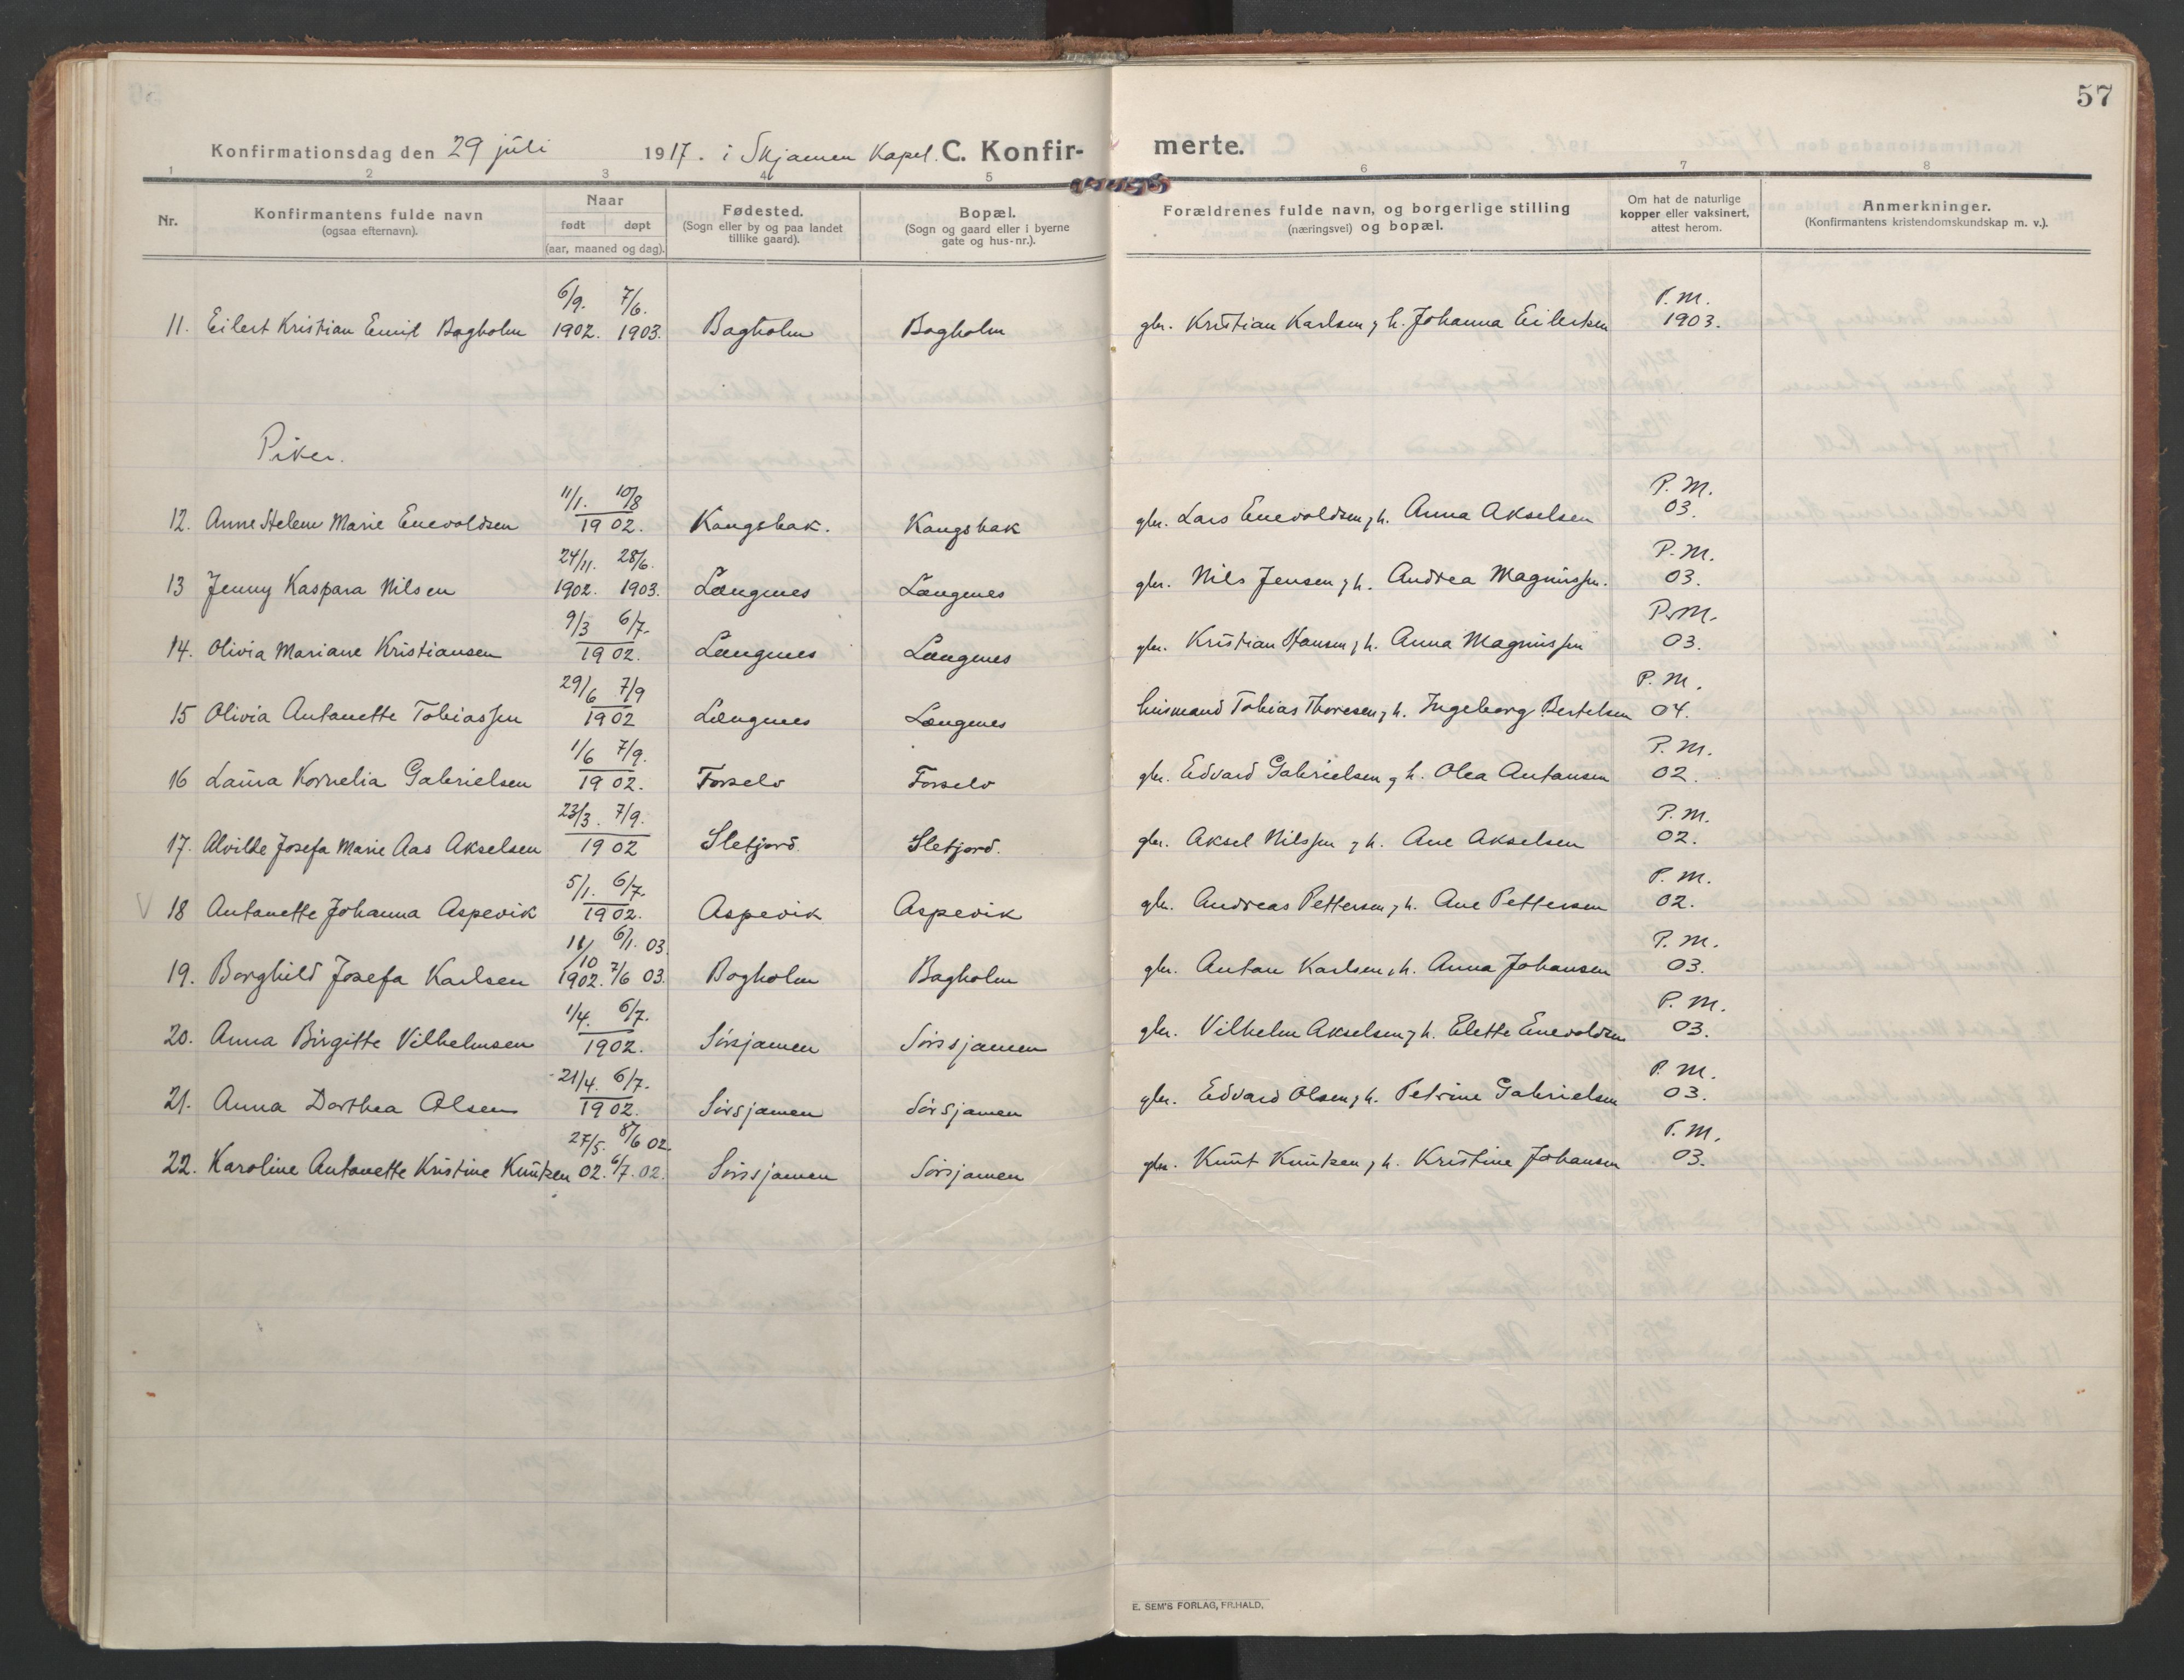 57
Konfirmationsdag den 29 juli 1917. i Skjamen Kapel. C. Konfirmerte.
1 2 3 4 5 6 7 8
Nr.
Konfirmantens fulde navn
(ogsaa efternavn).
Naar
født døpt
(aar, maaned og dag).
Fødested.
(Sogn eller by og paa landet
tillike gaard).
Bopæl.
(Sogn og gaard eller i byerne
gate og hus-nr.).
Forældrenes fulde navn, og borgerlige stilling
(næringsvei) og bopæl.
Om hat de naturlige
kopper eller vaksinert,
attest herom.
Anmerkninger.
(Konfirmantens kristendomskundskap m. v.).
6/9. 7/6. P.M.
11. Eilert Kristian Emil Bogholm 1902. 1903. Bogholm Bogholm gbr. Kristian Karlsen, h. Johanna Eilertsen 1903.
Piker.
11/1. 10/8 P.M.
12. Anne Helene Marie Enevoldsen 1902. Kongsbak. Kongsbak gbr. Lars Enevoldsen, h. Anna Akselsen 03.
24/11. 28/6. P.M.
13 Jenny Kaspara Nilsen 1902. 1903. Længnes Længnes gbr. Nils Jensen, h. Andrea Magnussen. 03.
9/3 6/7. P.M.
14. Olivia Mariane Kristiansen 1902. Længnes Længnes gbr. Kristian Hansen, h. Anna Magnussen 03.
29/6 7/9 P.M.
15 Olivia Antonette Tobiassen 1902 Længnes Længnes husmand Tobias Thoresen, h. Ingeborg Bertelsen 04.
1/6 7/9. P.M.
16 Laura Kornelia Gabrielsen 1902. Forselv Forselv gbr. Edvard Gabrielsen, h. Olea Antonsen 02.
23/3. 7/9. P.M.
17. Alvilde Josefa Marie Aas Akselsen 1902 Sletjord. Sletjord. gbr. Aksel Nilssen, h. Ane Akselsen 02.
5/1. 6/7. P.M.
V 18 Antonette Johanna Aspevik 1902. Aspevik Aspevik gbr. Andreas Pettersen, h. Ane Pettersen 02.
11/10 6/1. 03. P.M.
19. Borghild Josefa Karlsen 1902. 7/6 03. Bogholm Bogholm gbr. Anton Karlsen, h. Anna Johansen 03.
1/4. 6/7. P.M.
20. Anna Birgitte Vilhelmsen 1902. Sörsjamen Sörssjamen gbr. Vilhelm Akselsen, h. Elette Enevoldsen 03.
21/4. 6/7. P.M.
21. Anna Dorthea Olsen 1902. Sörsjamen Sörsjamen gbr. Edvard Olsen, h. Petrine Gabrielsen 03.
27/5. 8/6 02. P.M.
22. Karoline Antonette Kristine Knutsen 02. 6/7. 02. Sörssjamen Sörsjamen gbr. Knut Knutsen, h. Kristine Johansen 03.
E. SEM'S FORLAG, FR.HALD,